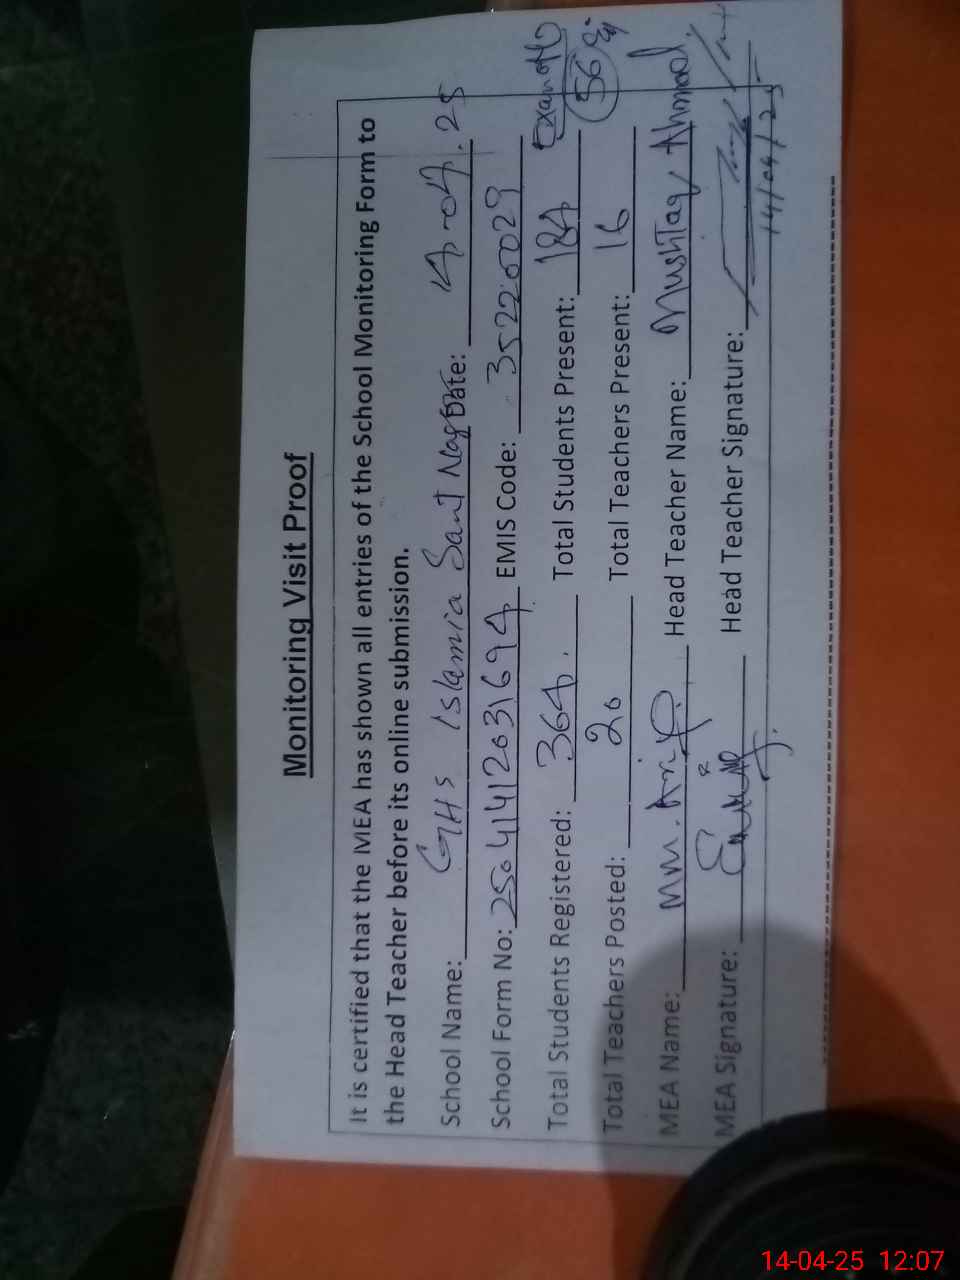 Monitoring Visit Proof
It is certified that the MEA has shown all entries of the School Monitoring Form to
the Head Teacher before its online submission.
School Name: GHS Islamia Sant Nagar Date: 14-04-25
School Form No: 25041412031694 EMIS Code: 35220029
Total Students Registered: 364 Total Students Present: 184
56
Total Teachers Posted: 20 Total Teachers Present: 16
MEA Name: Head Teacher Name: Mushtaq Ahmad
MEA Signature: Head Teacher Signature:
14/04/25
14-04-25 12:07